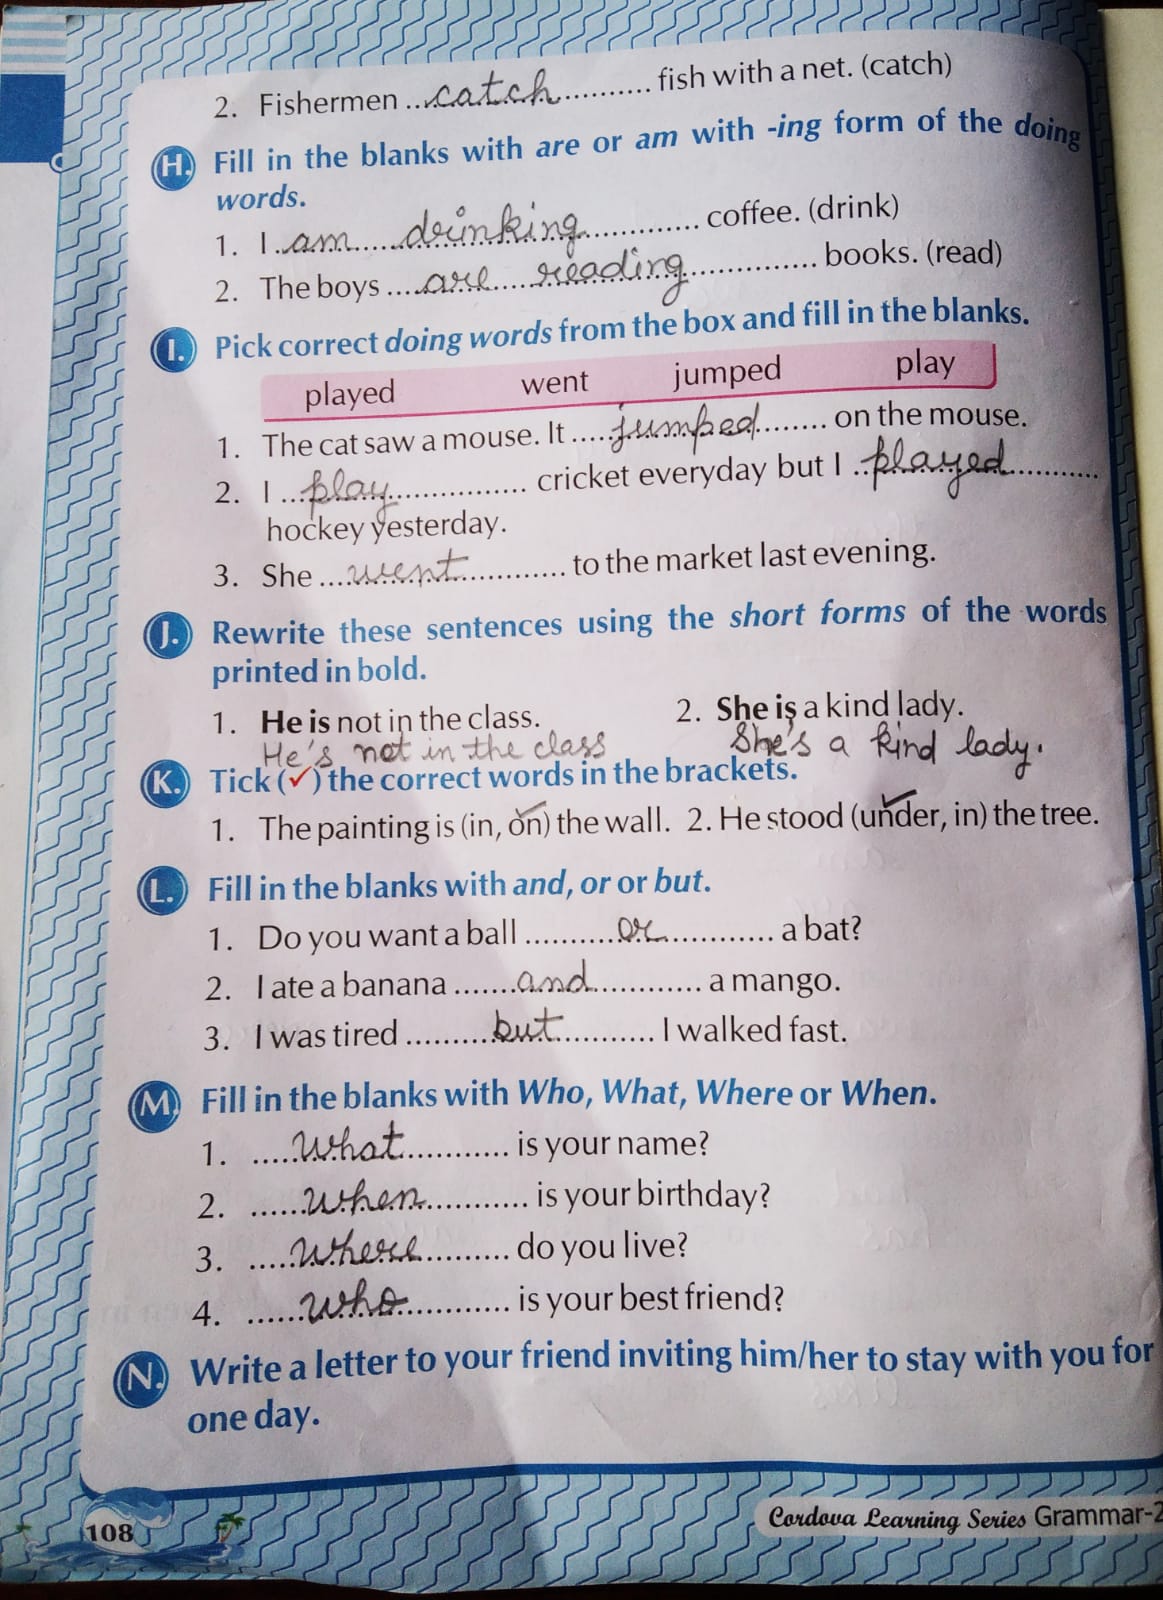 2. Fishermen ...catch.......... fish with a net. (catch)
H. Fill in the blanks with are or am with -ing form of the doing
words.
1. I ..am......drinking............. coffee. (drink)
2. The boys ....are.....reading............... books. (read)
I. Pick correct doing words from the box and fill in the blanks.
played went jumped play
1. The cat saw a mouse. It .....jumped........ on the mouse.
2. I ...play................. cricket everyday but I ..played............
hockey yesterday.
3. She ....went............. to the market last evening.
J. Rewrite these sentences using the short forms of the words
printed in bold.
1. He is not in the class. 2. She is a kind lady.
He's not in the class She's a kind lady.
K. Tick (✓) the correct words in the brackets.
1. The painting is (in, on) the wall. 2. He stood (under, in) the tree.
L. Fill in the blanks with and, or or but.
1. Do you want a ball ..........or............. a bat?
2. I ate a banana .......and............. a mango.
3. I was tired .........but............. I walked fast.
M. Fill in the blanks with Who, What, Where or When.
1. .....What............ is your name?
2. ......When............ is your birthday?
3. .....Where.......... do you live?
4. ......who............. is your best friend?
N. Write a letter to your friend inviting him/her to stay with you for
one day.
108
Cordova Learning Series Grammar-2